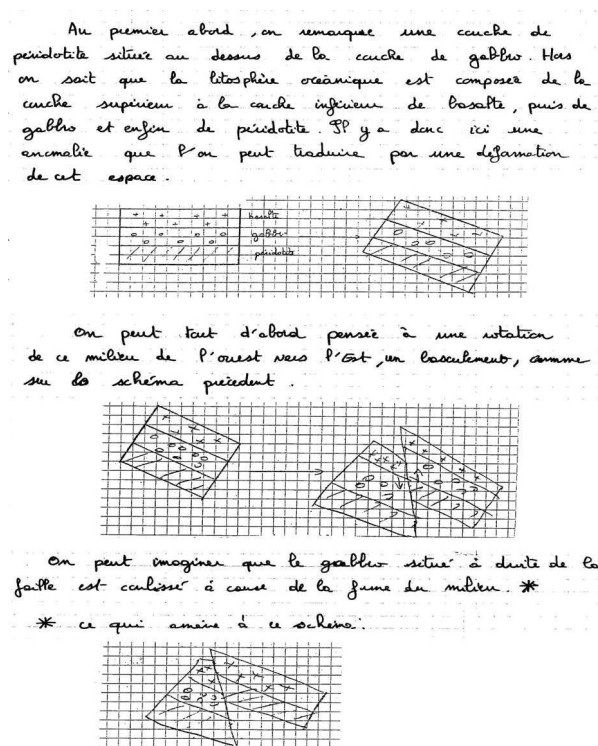 Au premier abord, on remarque une couche de
péridotite située au dessus de la couche de gabbro. Hors
on sait que la litosphère océanique est composée de la
couche supérieure à la couche inférieure de basalte, puis de
gabbro et enfin de péridotite. Il y a donc ici une
anomalie que l'on peut traduire par une déformation
de cet espace.
basalte
gabbro
péridotite
On peut tout d'abord pensée à une rotation
de ce milieu de l'ouest vers l'Est, un basculement, comme
sur le schéma précédent.
On peut imaginer que le gabbro situé à droite de la
faille est coulissé à cause de la du milieu. *
* ce qui amène à ce schéma: